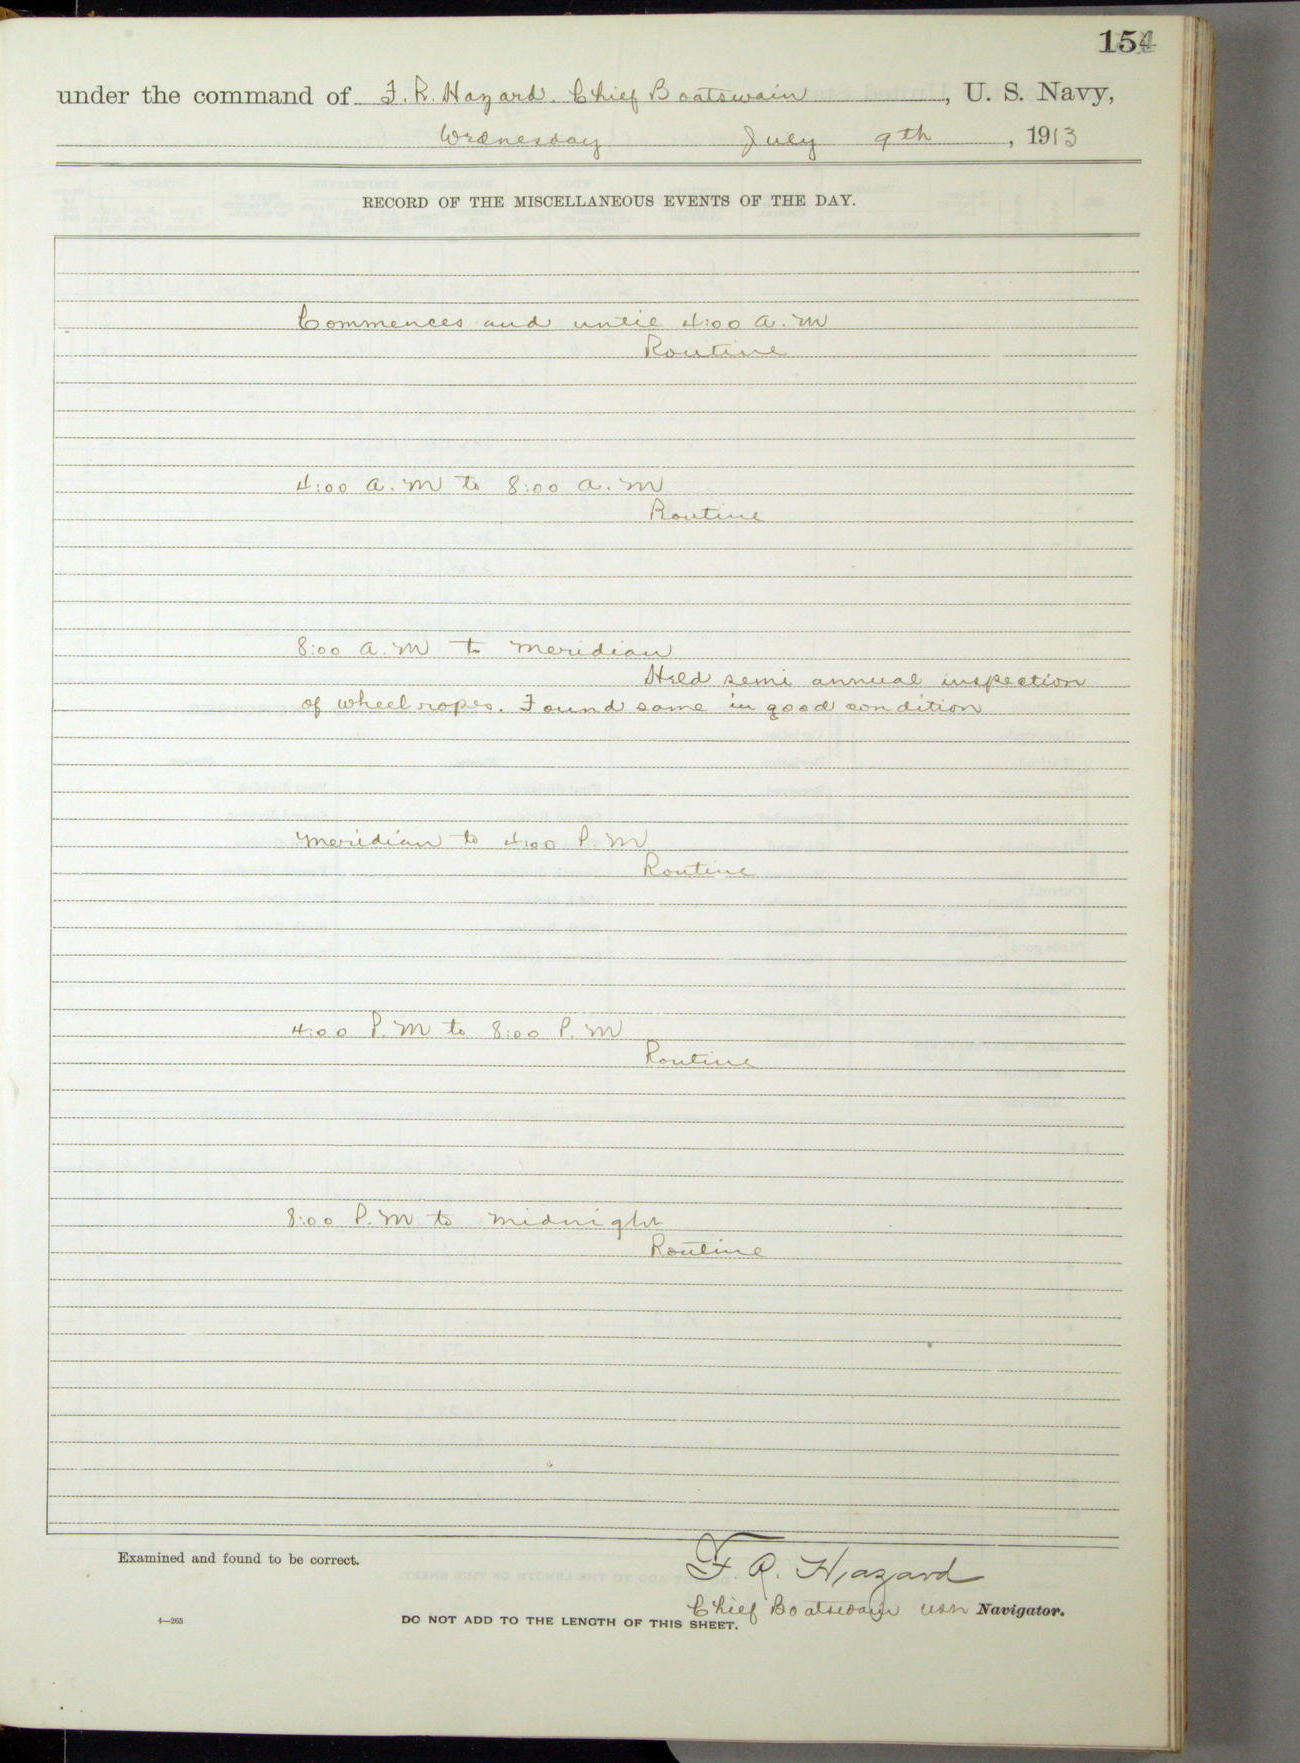 154
under the command of F. R. Hazard. Chief Boatswain, U. S. Navy,
Wednesday July 9th, 1913
RECORD OF THE MISCELLANEOUS EVENTS OF THE DAY.
Commences and until 4:00 a.m
Routine
4:00 a.m to 8:00 a.m
Routine
8:00 a.m to meridian
Held semi annual inspection
of wheel ropes. Found same in good condition
Meridian to 4:00 P.M
Routine
4:00 P.M to 8:00 P.M
Routine
8:00 P.M to midnight
Routine
Examined and found to be correct.
F. R. Hazard
Chief Boatswain USN Navigator.
4—265
DO NOT ADD TO THE LENGTH OF THIS SHEET.